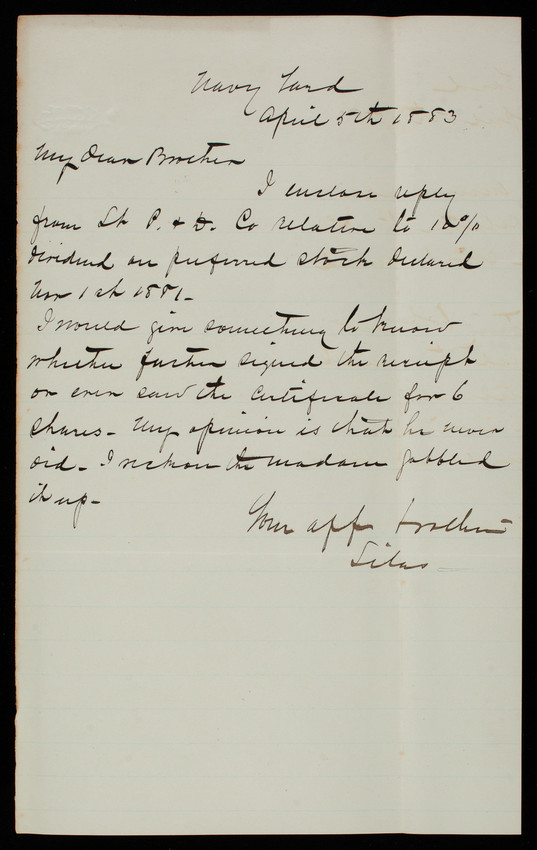 Navy Yard
April 5th 1883
My dear Brother
I enclose reply
from St P. & D. Co relative to 10%
dividend on preferred stock declared
Nov 1st 1881-
I would give something to know
whether father signed the receipt
or even saw the certificate for 6
shares- My opinion is that he never
did- I reckon the madam gobbled
it up-
Your aff brother
Silas